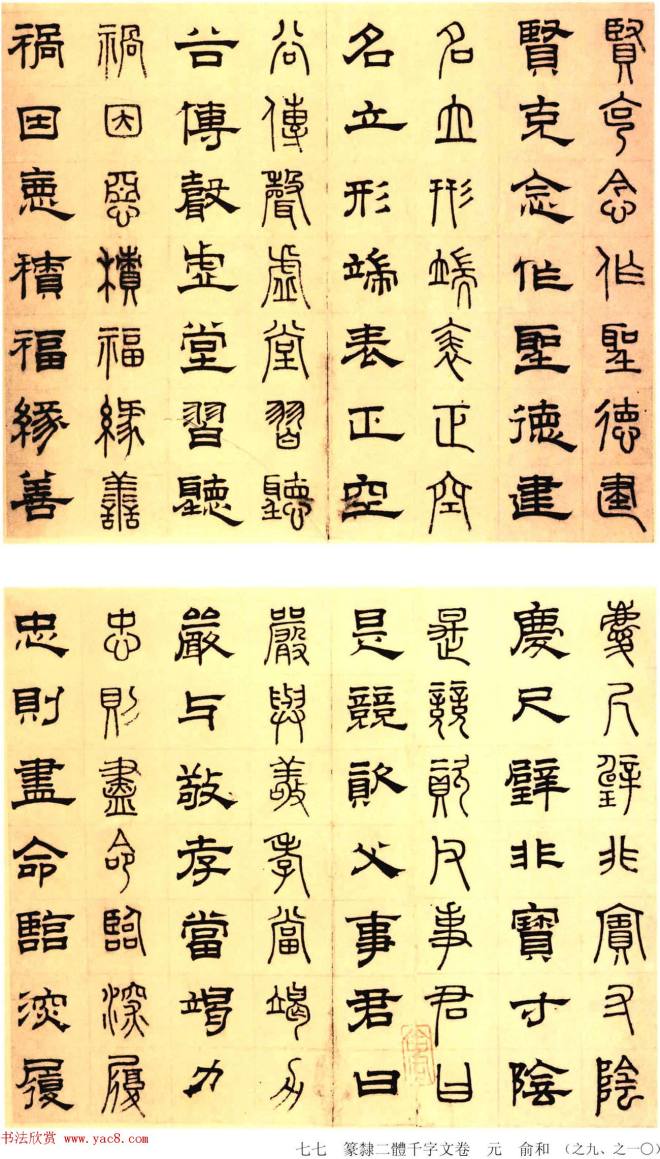 賢克念作聖德建
賢克念作聖德建
名立形端表正空
名立形端表正空
谷傳聲虛堂習聽
谷傳聲虛堂習聽
禍因惡積福緣善
禍因惡積福緣善
慶尺璧非寶寸陰
慶尺璧非寶寸陰
是競資父事君曰
是競資父事君曰
嚴與敬孝當竭力
嚴与敬孝當竭力
忠則盡命臨深履
忠則盡命臨深履
书法欣赏 www.yac8.com
七七 篆隸二體千字文卷 元 俞和 (之九、之一〇)